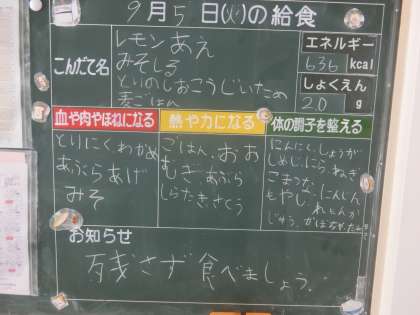 9月5日(火)の給食
こんだて名
レモンあえ
みそしる
とりのしおこうじいため
麦ごはん
エネルギー
636 kcal
しょくえん
2.0 g
血や肉やほねになる
とりにく わかめ
あぶらあげ
みそ
熱や力になる
ごはん、おお
むぎ、あぶら
しらたき、さとう
体の調子を整える
にんにく、しょうが
しめじ、にら、ねぎ
こまつな、にんじん
もやし、れもんか
じゅう、かぼちゃ、たま
お知らせ
残さず食べましょう。